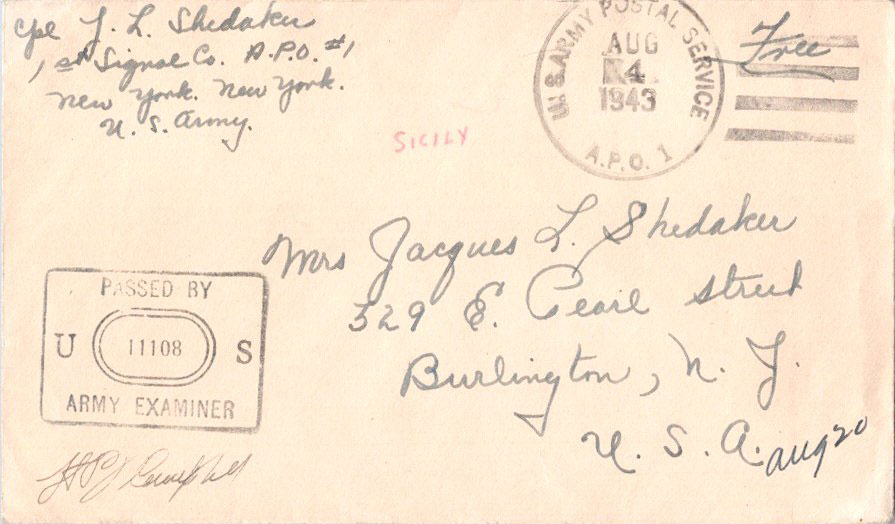 Cpl J. L. Shedaker
1st Signal Co. A.P.O. #1
New York. New York.
U. S. Army.
SICILY
U.S. ARMY POSTAL SERVICE
AUG
4
1943
A.P.O. 1
Free
Mrs Jacques L. Shedaker
329 E. Pearl Street
Burlington, N. J.
U. S. A.
Aug 20
PASSED BY
U 11108 S
ARMY EXAMINER